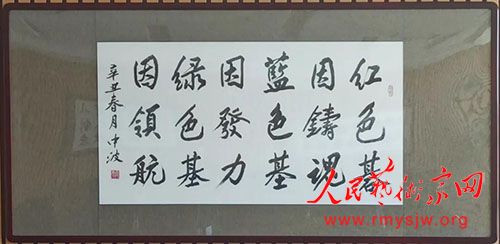 红色基
因鑄魂
藍色基
因發力
绿色基
因領航
辛丑春月中波
人民藝術家网
www.rmysjw.org